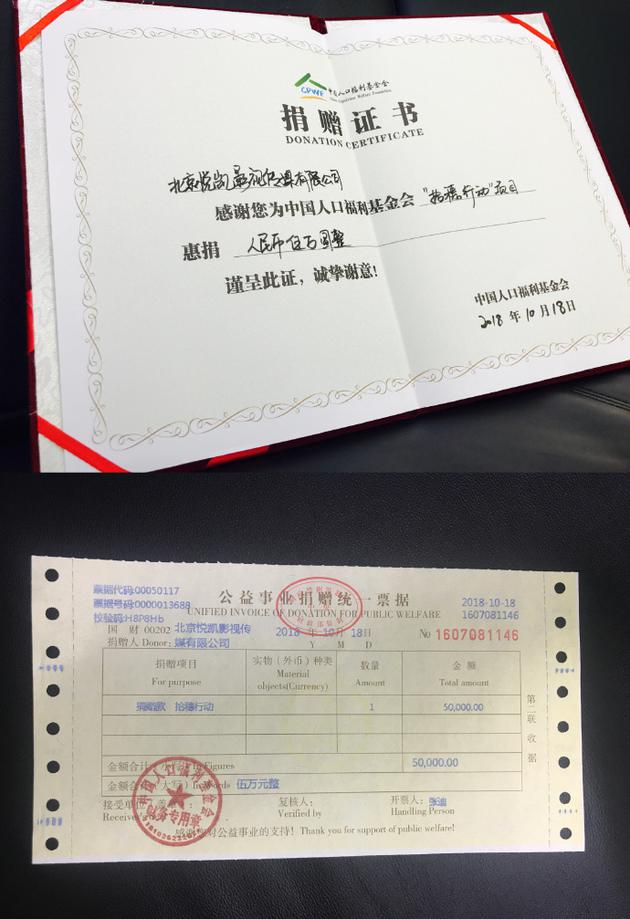 CPWF 中国人口福利基金会
China Population Welfare Foundation
捐赠证书
DONATION CERTIFICATE
北京悦凯影视传媒有限公司
感谢您为中国人口福利基金会 "拾穗行动" 项目
惠捐 人民币伍万圆整
谨呈此证，诚挚谢意！
中国人口福利基金会
2018 年 10 月 18 日
票据代码:00050117
票据号码:0000013688
校验码:H8P8Hb
公益事业捐赠统一票据
UNIFIED INVOICE OF DONATION FOR PUBLIC WELFARE
2018-10-18
1607081146
国 财 00202
捐赠人 Donor: 北京悦凯影视传媒有限公司
2018 年 10月 18日
Y M D
No 1607081146
捐赠项目 实物（外币）种类 数量 金 额
For purpose Material objects(Currency) Amount Total amount
捐赠款 拾穗行动 1 50,000.00
金额合计（小写）In Figures 50,000.00
金额合计（大写）In Words 伍万元整
接受单位（盖章）： 复核人： 开票人：张迪
Receiver's Verified by Handling Person
感谢您对公益事业的支持！Thank you for support of public welfare!
第二联 收据
中国人口福利基金会
财务专用章